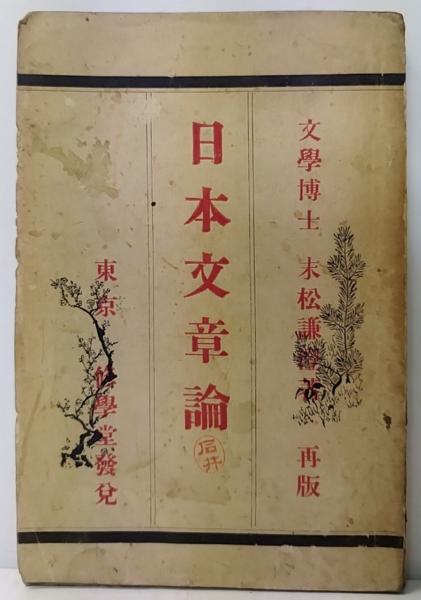 文學博士 末松謙澄著 再版
日本文章論
石井
東京 學堂發兌